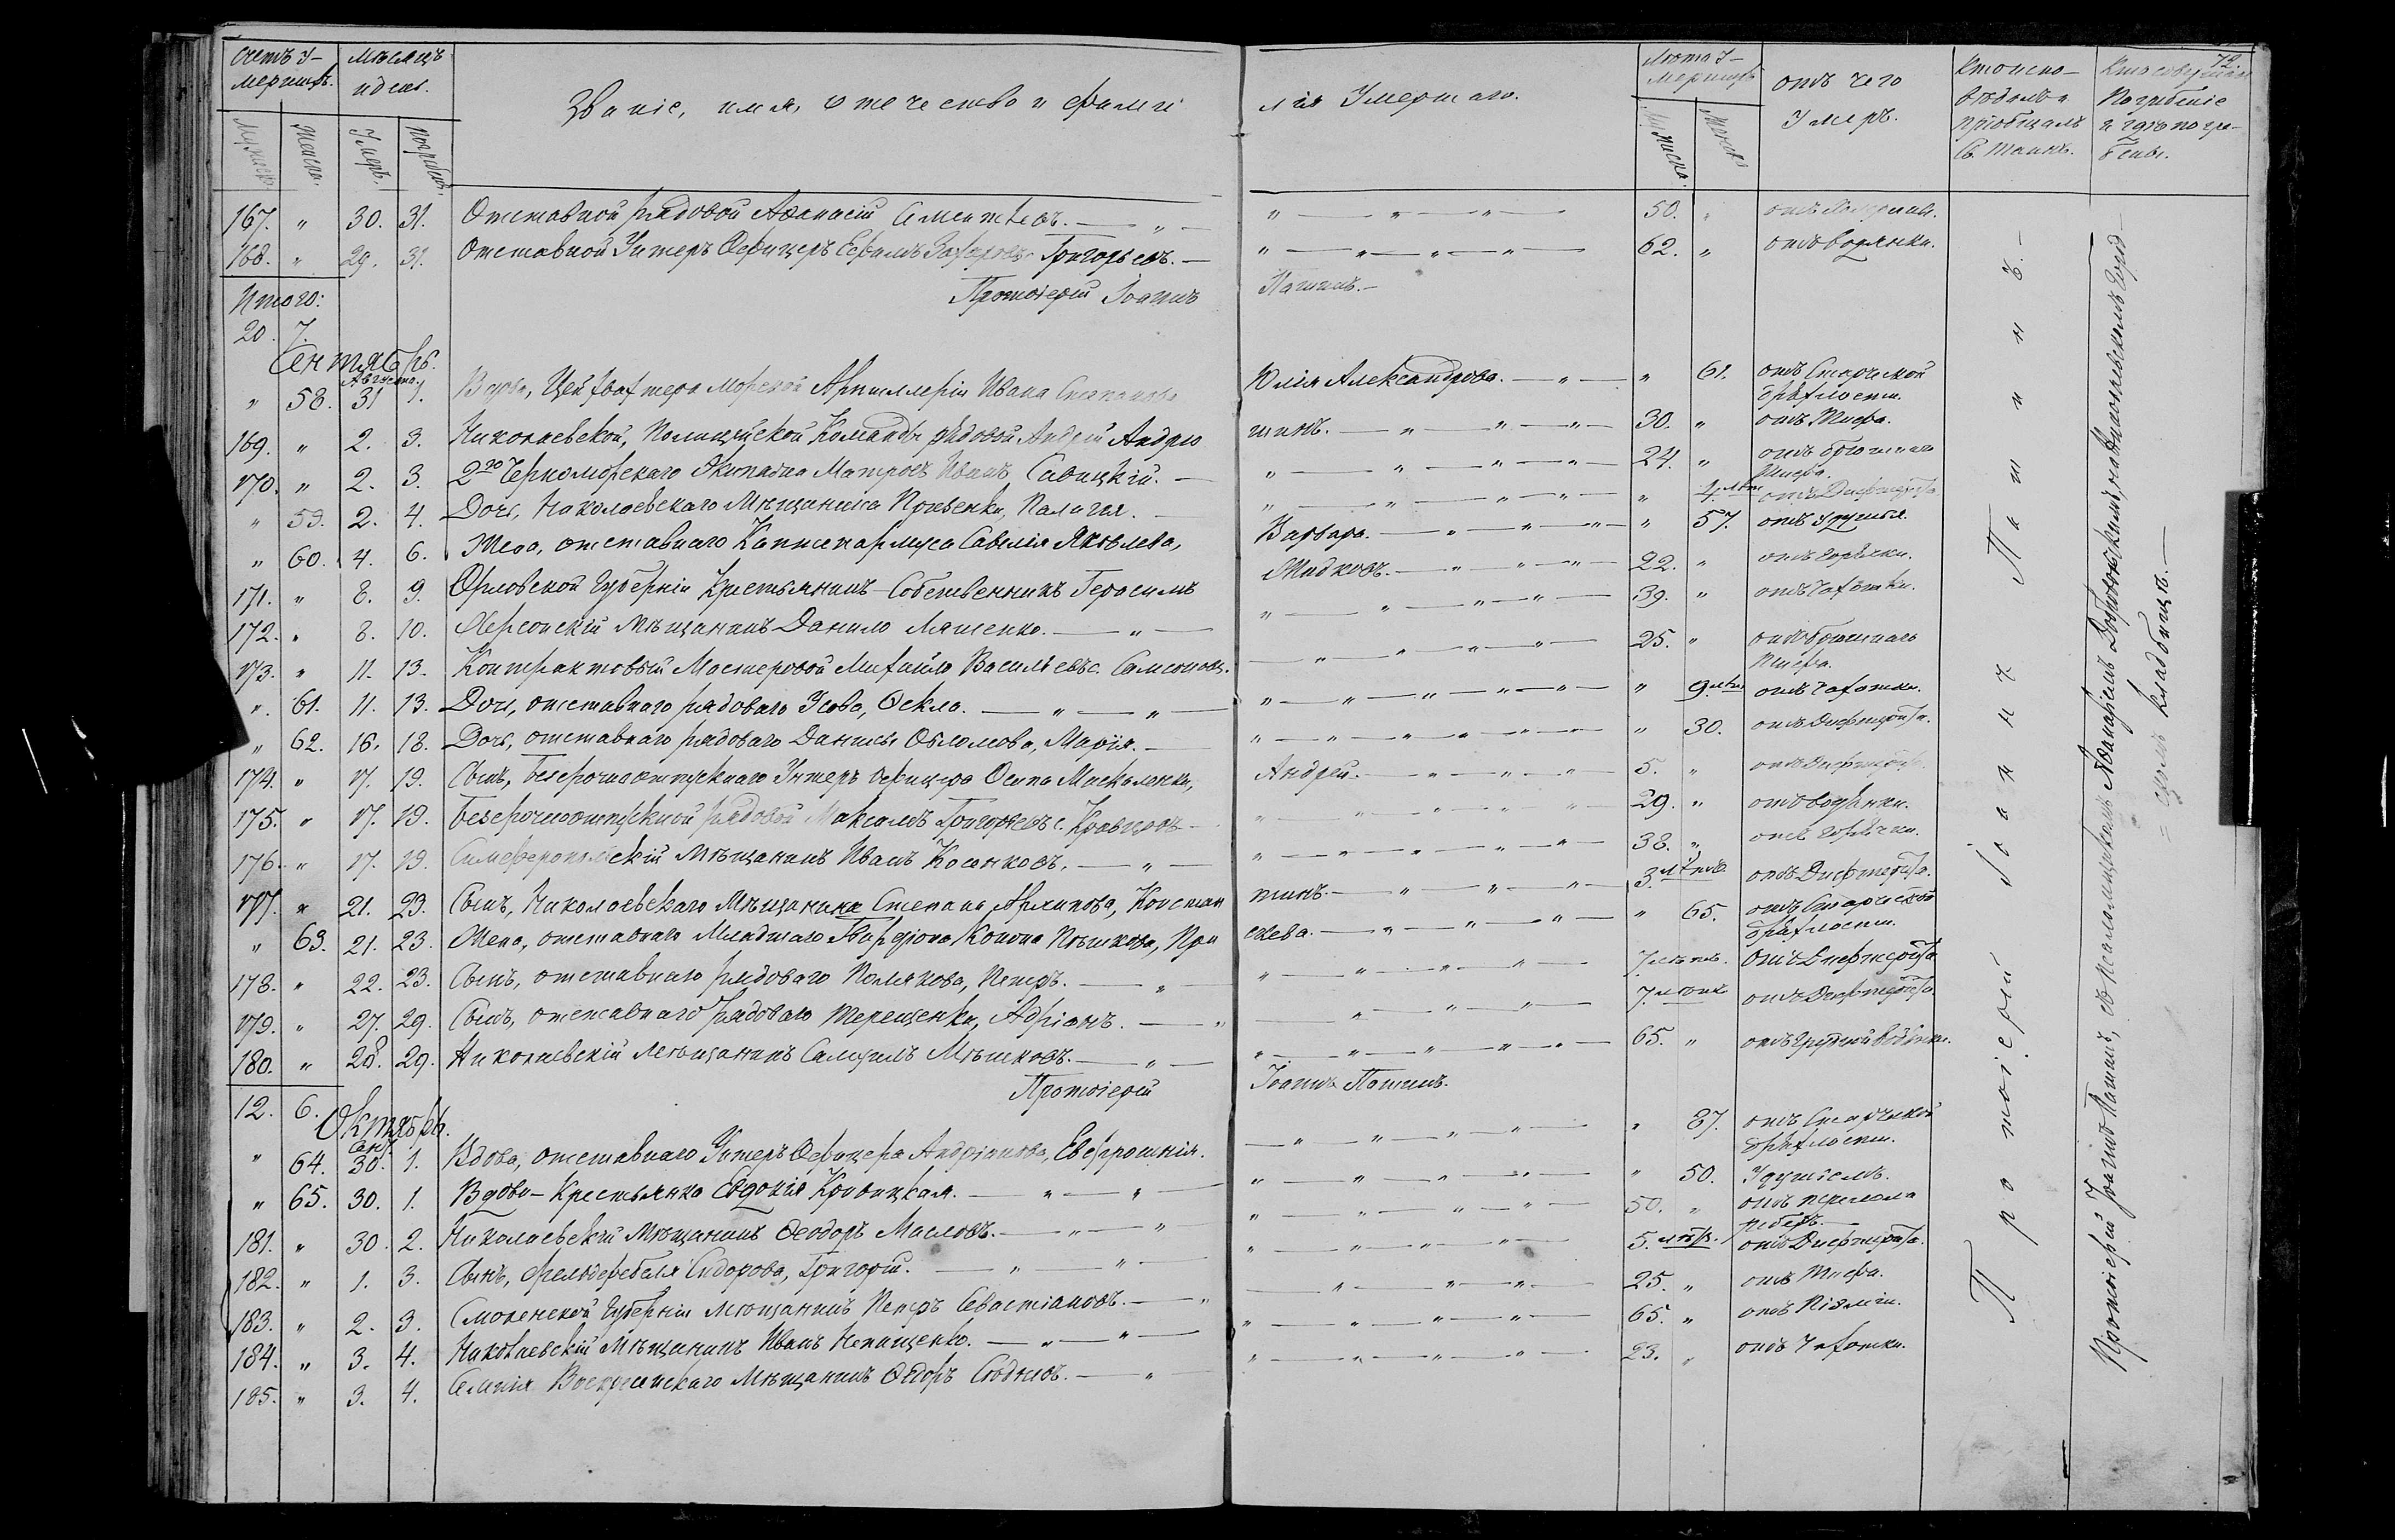 72.
Счетъ У-
мершихъ.
Мѣсяцъ
и день.
Званіе, имя, отечество и фамилія Умершаго.
Лѣта У-
мершихъ
отъ чего
Умеръ.
Кто испо-
вѣдовалъ и
пріобщалъ
Св. Таинъ.
Кто совершалъ
Погребеніе
и гдѣ погре-
бены.
Мужеск.
Женск.
Умеръ.
Погребенъ.
Мужеск.
Женск.
167. " 30. 31. Отставной рядовой Афанасій 50. "
168. " 29. 31. Отставной Унтеръ Офицеръ Ефимъ Григорьевъ. 62. " отъ водянки.
Итого:
20. 7.
Протоіерей Іоаннъ Патинъ.
Сентябрь.
Августа
" 58. 31 1. Вдова, Цейхвахтера Морской Артиллеріи Ивана Степанова Юлія Александрова. " 61. отъ Старческой
дряхлости.
169. " 2. 3. Николаевской, Полицейской Команды рядовой Андрей Андрюшинъ. 30. " отъ Тифа.
170. " 2. 3. 2го Черноморскаго Экипажа Матросъ Иванъ Савицкій. 24. " отъ брюшнаго
Тифа.
" 59. 2. 4. Дочь, Николаевскаго Мѣщанина Палагія. " 4. лѣт. отъ Дифтерита
" 60. 4. 6. Жена, отставнаго Каптенармуса Савелія Яковлева, Варвара. " 57. отъ удушья.
171. " 8. 9. Орловской Губерніи Крестьянинъ-Собственникъ Герасимъ Жидковъ. 22. " отъ горячки.
172. " 8. 10. Херсонскій Мѣщанинъ Данило Ляшенко. 39. " отъ Чахотки.
173. " 11. 13. Контрактовый Мастеровой Михайло Васильевъ с. Самсоновъ. 25. " отъ брюшнаго
Тифа.
" 61. 11. 13. Дочь, отставнаго рядоваго Усова, Фекла. " 9. лѣт. отъ Чахотки.
" 62. 16. 18. Дочь, отставнаго рядоваго Данилы Обломова, Марія. " 30. отъ Дифтерита.
174. " 17. 19. Сынъ, безсрочноотпускнаго Унтеръ офицера Осипа Москаленки, Андрей. 5. " отъ Дифтерита.
175. " 17. 19. Безсрочноотпускной рядовой Максимъ Григорьевъ с. Кравцовъ 29. " отъ водянки.
176. " 17. 19. Симферопольскій Мѣщанинъ Иванъ Косенковъ. 38. " отъ горячки.
177. " 21. 23. Сынъ, Николаевскаго Мѣщанина Степана Архипова, Константинъ. 3. лѣтъ отъ Дифтерита.
" 63. 21. 23. Жена, отставнаго Младшаго Конона Пѣшкова, " 65. отъ Старческой
дряхлости.
178. " 22. 23. Сынъ, отставнаго рядоваго Полякова, Петръ. 7 отъ Дифтерита
179. " 27. 29. Сынъ, отставнаго рядоваго Терещенки, Адріанъ. 7. отъ Дифтерита.
180. " 28. 29. Николаевскій Мѣщанинъ Самуилъ Мѣшковъ. 65. " отъ грудной водянки.
Протоіерей Іоаннъ Патинъ.
12. 6.
Октябрь.
Сент.
" 64. 30. 1. Вдова, отставнаго Унтеръ Офицера Андріянова, Евфросинія. " 87. отъ Старческой
дряхлости.
" 65. 30. 1. Вдова-Крестьянка Евдокія Кривицкая. " 50. Удушіемъ.
181. " 30. 2. Николаевскій Мѣщанинъ Феодоръ Масловъ. 50. " отъ перелома
реберъ.
182. " 1. 3. Сынъ, фельдфебеля Сидорова, Григорій. 5. отъ Дифтерита.
183. " 2. 3. Смоленской Губерніи Мѣщанинъ Петръ Севастіановъ. 25. " отъ Тифа.
184. " 3. 4. Николаевскій Мѣщанинъ Иванъ 65. "
185. " 3. 4. Воскресенскаго Мѣщанинъ Ѳедоръ 23. " отъ Чахотки.
Протоіерей Іоаннъ Патинъ.
Протоіерей Іоаннъ Патинъ, съ Псаломщикомъ Афанасіемъ Добровольскимъ, на Николаевскомъ Город-
скомъ кладбищѣ.